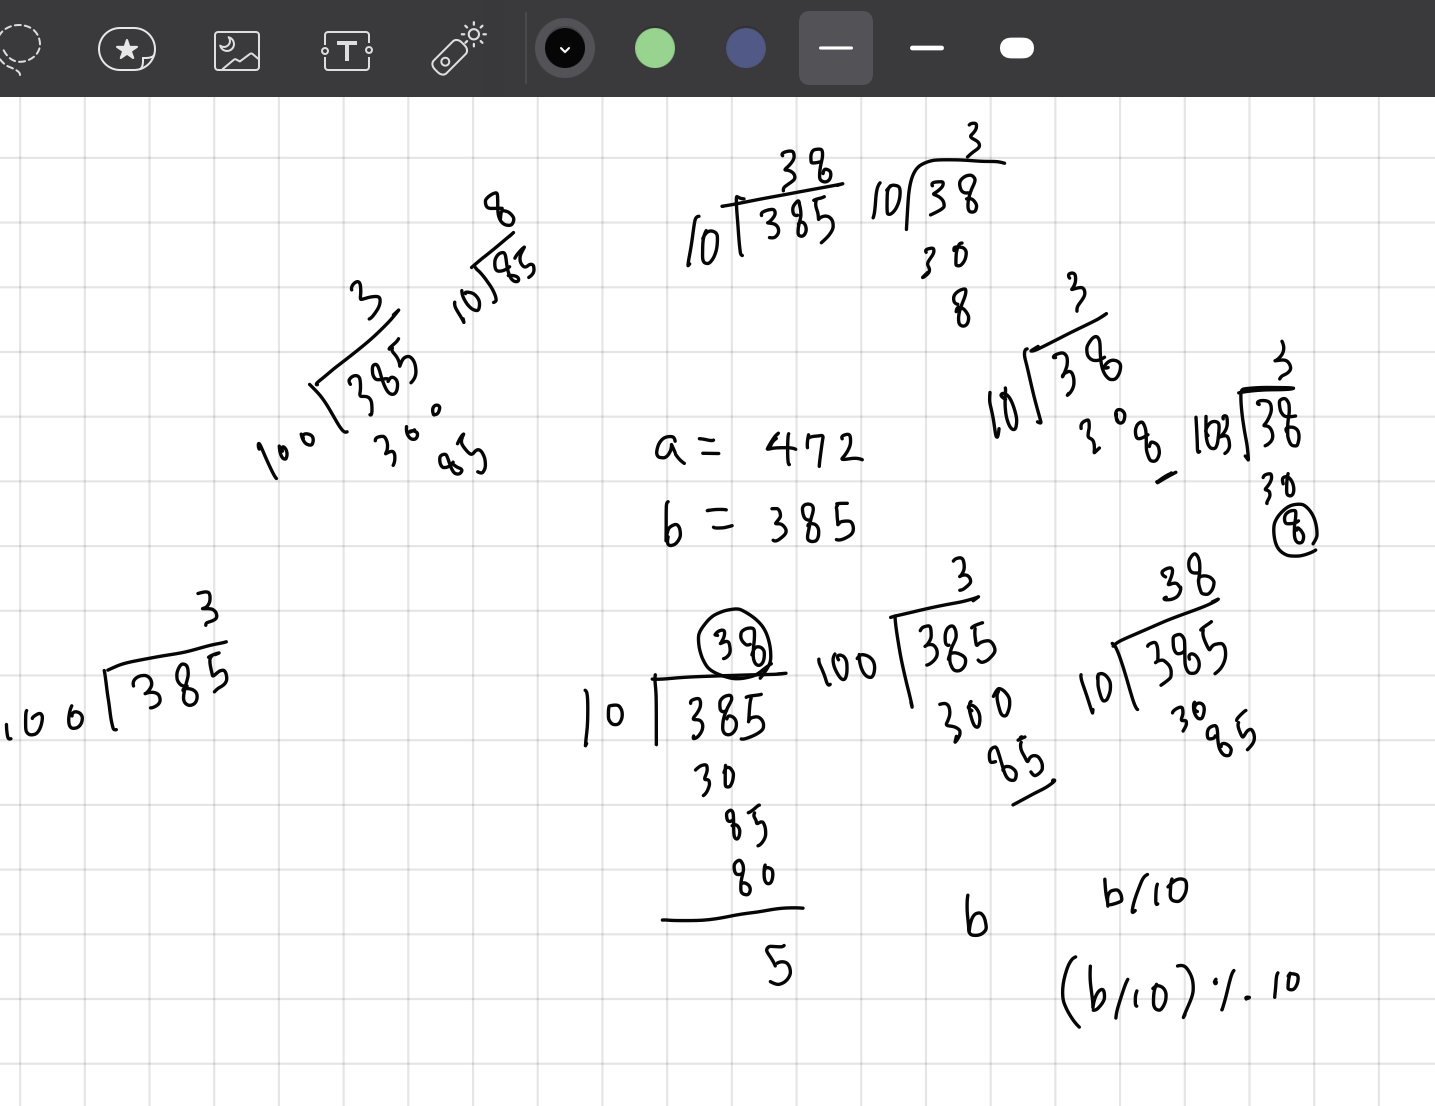 3
8
10 85
3
100 385
300
85
3
100 385
38
10 385
3
10 38
30
8
3
10 38
30
8
3
38
30
8
a = 472
b = 385
38
10 385
30
85
80
5
3
100 385
300
85
38
10 385
30
85
b
b/10
(b/10) % 10
T